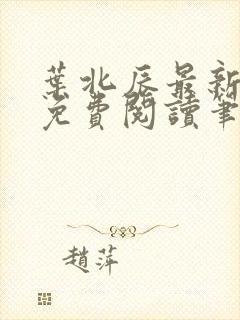 葉北辰最新
免費閱讀筆
趙萍